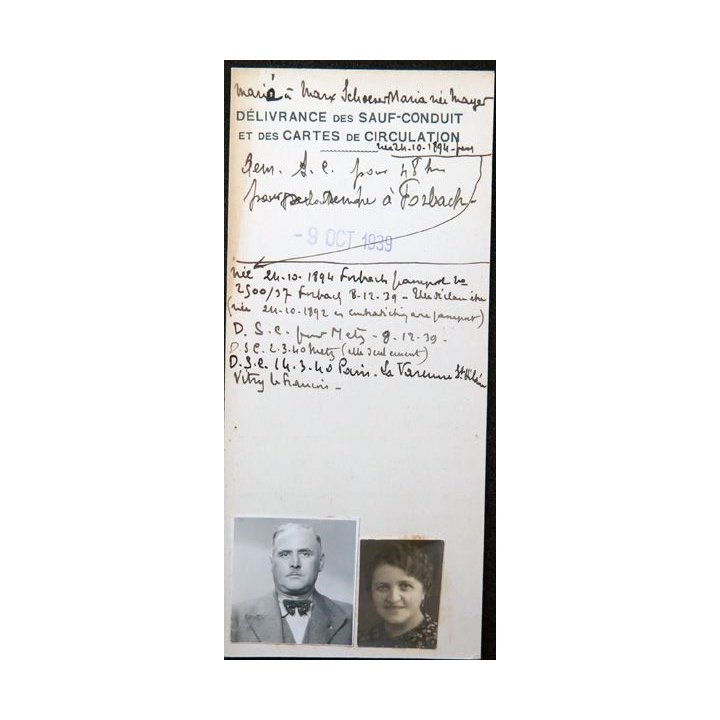 Marié à Marx Schoeser Maria née Mayer
DÉLIVRANCE DES SAUF-CONDUIT
ET DES CARTES DE CIRCULATION
née 24-10-1894
Dem. S.C. pour 48 h
pour se rendre à Forbach-
- 9 OCT 1939
née 24-10-1894 Forbach passeport No
2500/37 Forbach 8-12-39 - Elle déclare être
(née 24-10-1892 en contradiction avec passeport)
D. S.C. pour Metz - 8-12-39-
D.S.C. 2.3.40 Metz (elle seulement)
D.S.C. 14.3.40 Paris - La Varenne St Hilaire
Vitry le François -